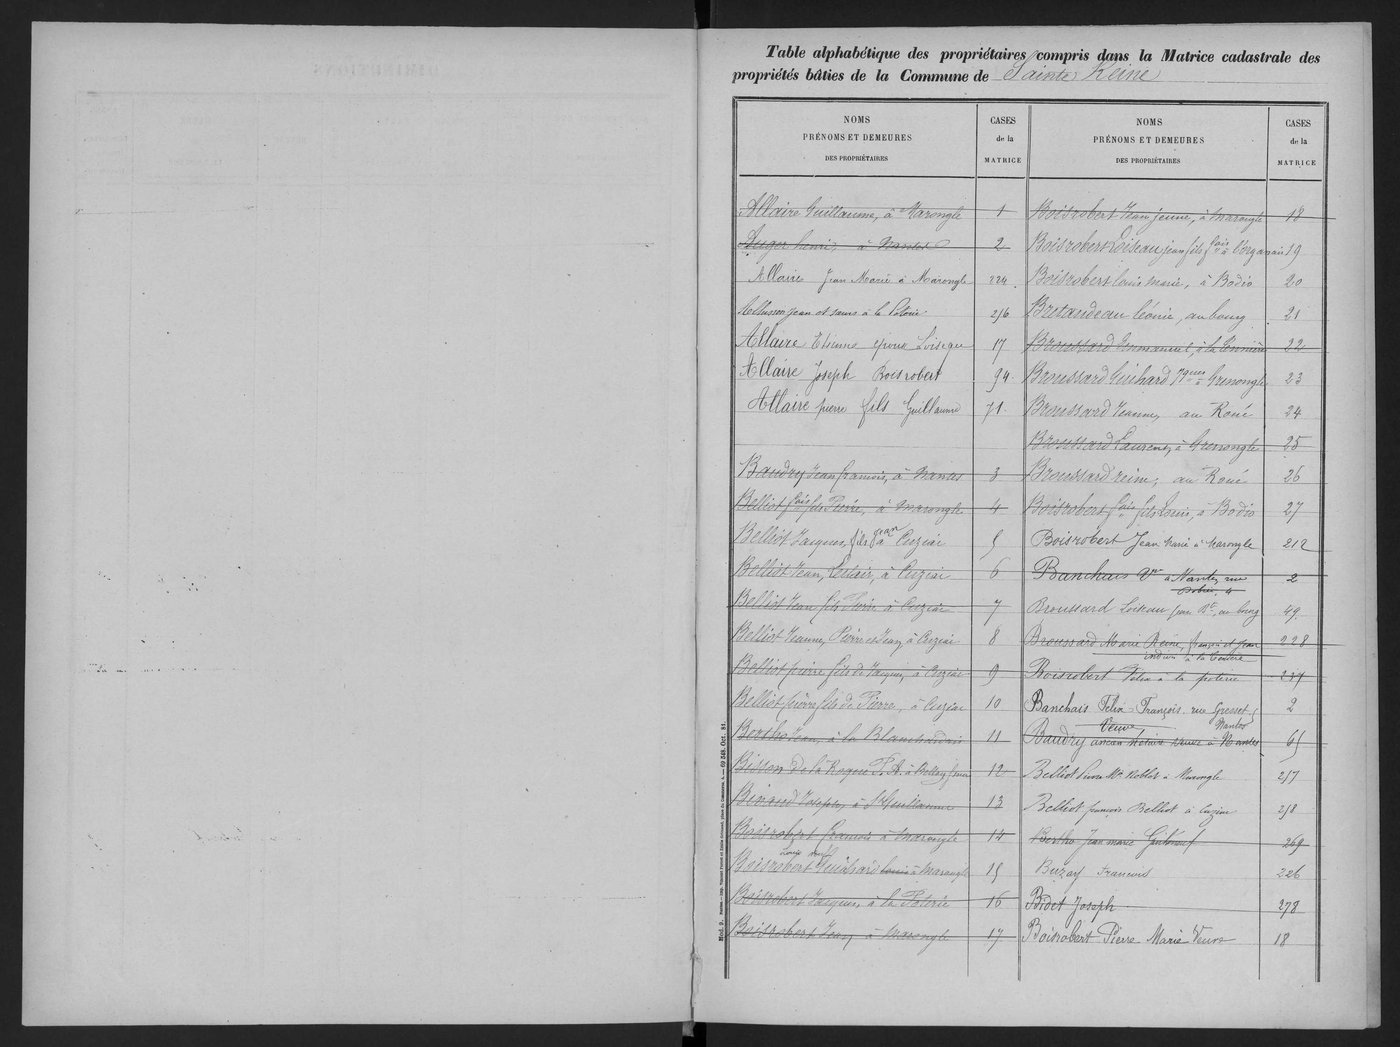 Table alphabétique des propriétaires compris dans la Matrice cadastrale des
propriétés bâties de la Commune de Sainte Reine
NOMS
PRÉNOMS ET DEMEURES
DES PROPRIÉTAIRES
CASES
de la
MATRICE
Allaire Guillaume, à Marongle 1
Auger henri, à Nantes 2
Allaire Jean Marie à Marongle 224
jean et sœurs à la Poterie 256
Allaire Etienne époux Loiseau 17
Allaire Joseph Boisrobert 94
Allaire pierre fils Guillaume 71
Baudry Jean francois, à Nantes 3
Belliot fois fils Pierre, à Marongle 4
Belliot Jacques, fils jean à Cuziac 5
Belliot Jean, à Cuziac 6
Belliot Jean fils Pierre à Cuziac 7
Belliot Jeanne, Pierre et Jean, à Cuziac 8
Belliot pierre fils de Jacques, à Cuziac 9
Belliot pierre fils de Pierre, à Cuziac 10
Bertho Jean, à la 11
Bisson de la Roque 12
Joseph, à St Guillaume 13
Boisrobert francois à Marongle 14
Boisrobert Guihard Louis à Marongle 15
Boisrobert Jacques, à la Poterie 16
Boisrobert Jean, à Marongle 17
NOMS
PRÉNOMS ET DEMEURES
DES PROPRIÉTAIRES
CASES
de la
MATRICE
Boisrobert Jean jeune, à Marongle 18
Boisrobert Loiseau jean fils fois à 19
Boisrobert Louis Marie, à Bodio 20
Bretaudeau Léonie, au bourg 21
Broussard Emmanuel, à la 22
Broussard Guihard Jques à Grenongle 23
Broussard Jeanne, au Roué 24
Broussard Laurent, à Grenongle 25
Broussard reine, au Roué 26
Boisrobert fois fils Louis, à Bodio 27
Boisrobert Jean Marie à Marongle 212
Banchais Vve à Nantes, rue 2
Broussard Loiseau Jean Bte, au bourg 49
Broussard Marie Reine, françois et Jean 228
Boisrobert Felix à la poterie 257
Banchais Felix François rue Gresset Nantes 2
Veuve
Baudry ancien Notaire à Nantes 65
Belliot Pierre à Marongle 257
Belliot françois Belliot à Cuziac 258
Bertho Jean marie 269
Buzay Francois 226
Bidet Joseph 278
Boisrobert Pierre Marie Veuve 18